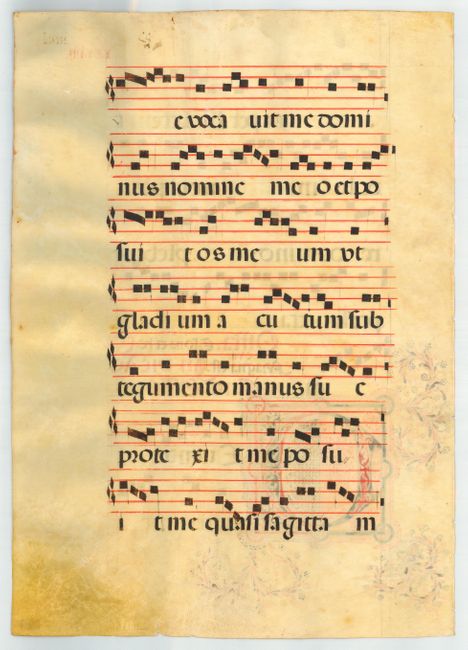 e voca uit me domi
nus nomine me o et po
sui t os me um vt
gladi um a cu tum sub
tegumento manus su e
prote xi t me po su
i t me quasi sagitta m